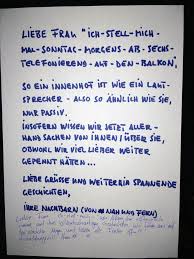 LIEBE FRAU "ICH-STELL-MICH-
MAL-SONNTAG-MORGENS-AB-SECHS-
TELEFONIEREND-AUF-DEN-BALKON",
SO EIN INNENHOF IST WIE EIN LAUT-
SPRECHER - ALSO SO ÄHNLICH WIE SIE,
NUR PASSIV.
INSOFERN WISSEN WIR JETZT ALLER-
HAND SACHEN VON IHNEN / ÜBER SIE,
OBWOHL WIR VIEL LIEBER WEITER
GEPENNT HÄTTEN...
LIEBE GRÜSSE UND WEITERHIN SPANNENDE
GESCHICHTEN,
IHRE NACHBARN (VON NAH UND FERN)